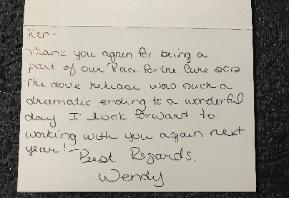 Ken -
Thank you again for being a
part of our Race for the Cure 2012.
The dove release was such a
dramatic ending to a wonderful
day I look forward to
working with you again next
year! - Best Regards,
Wendy